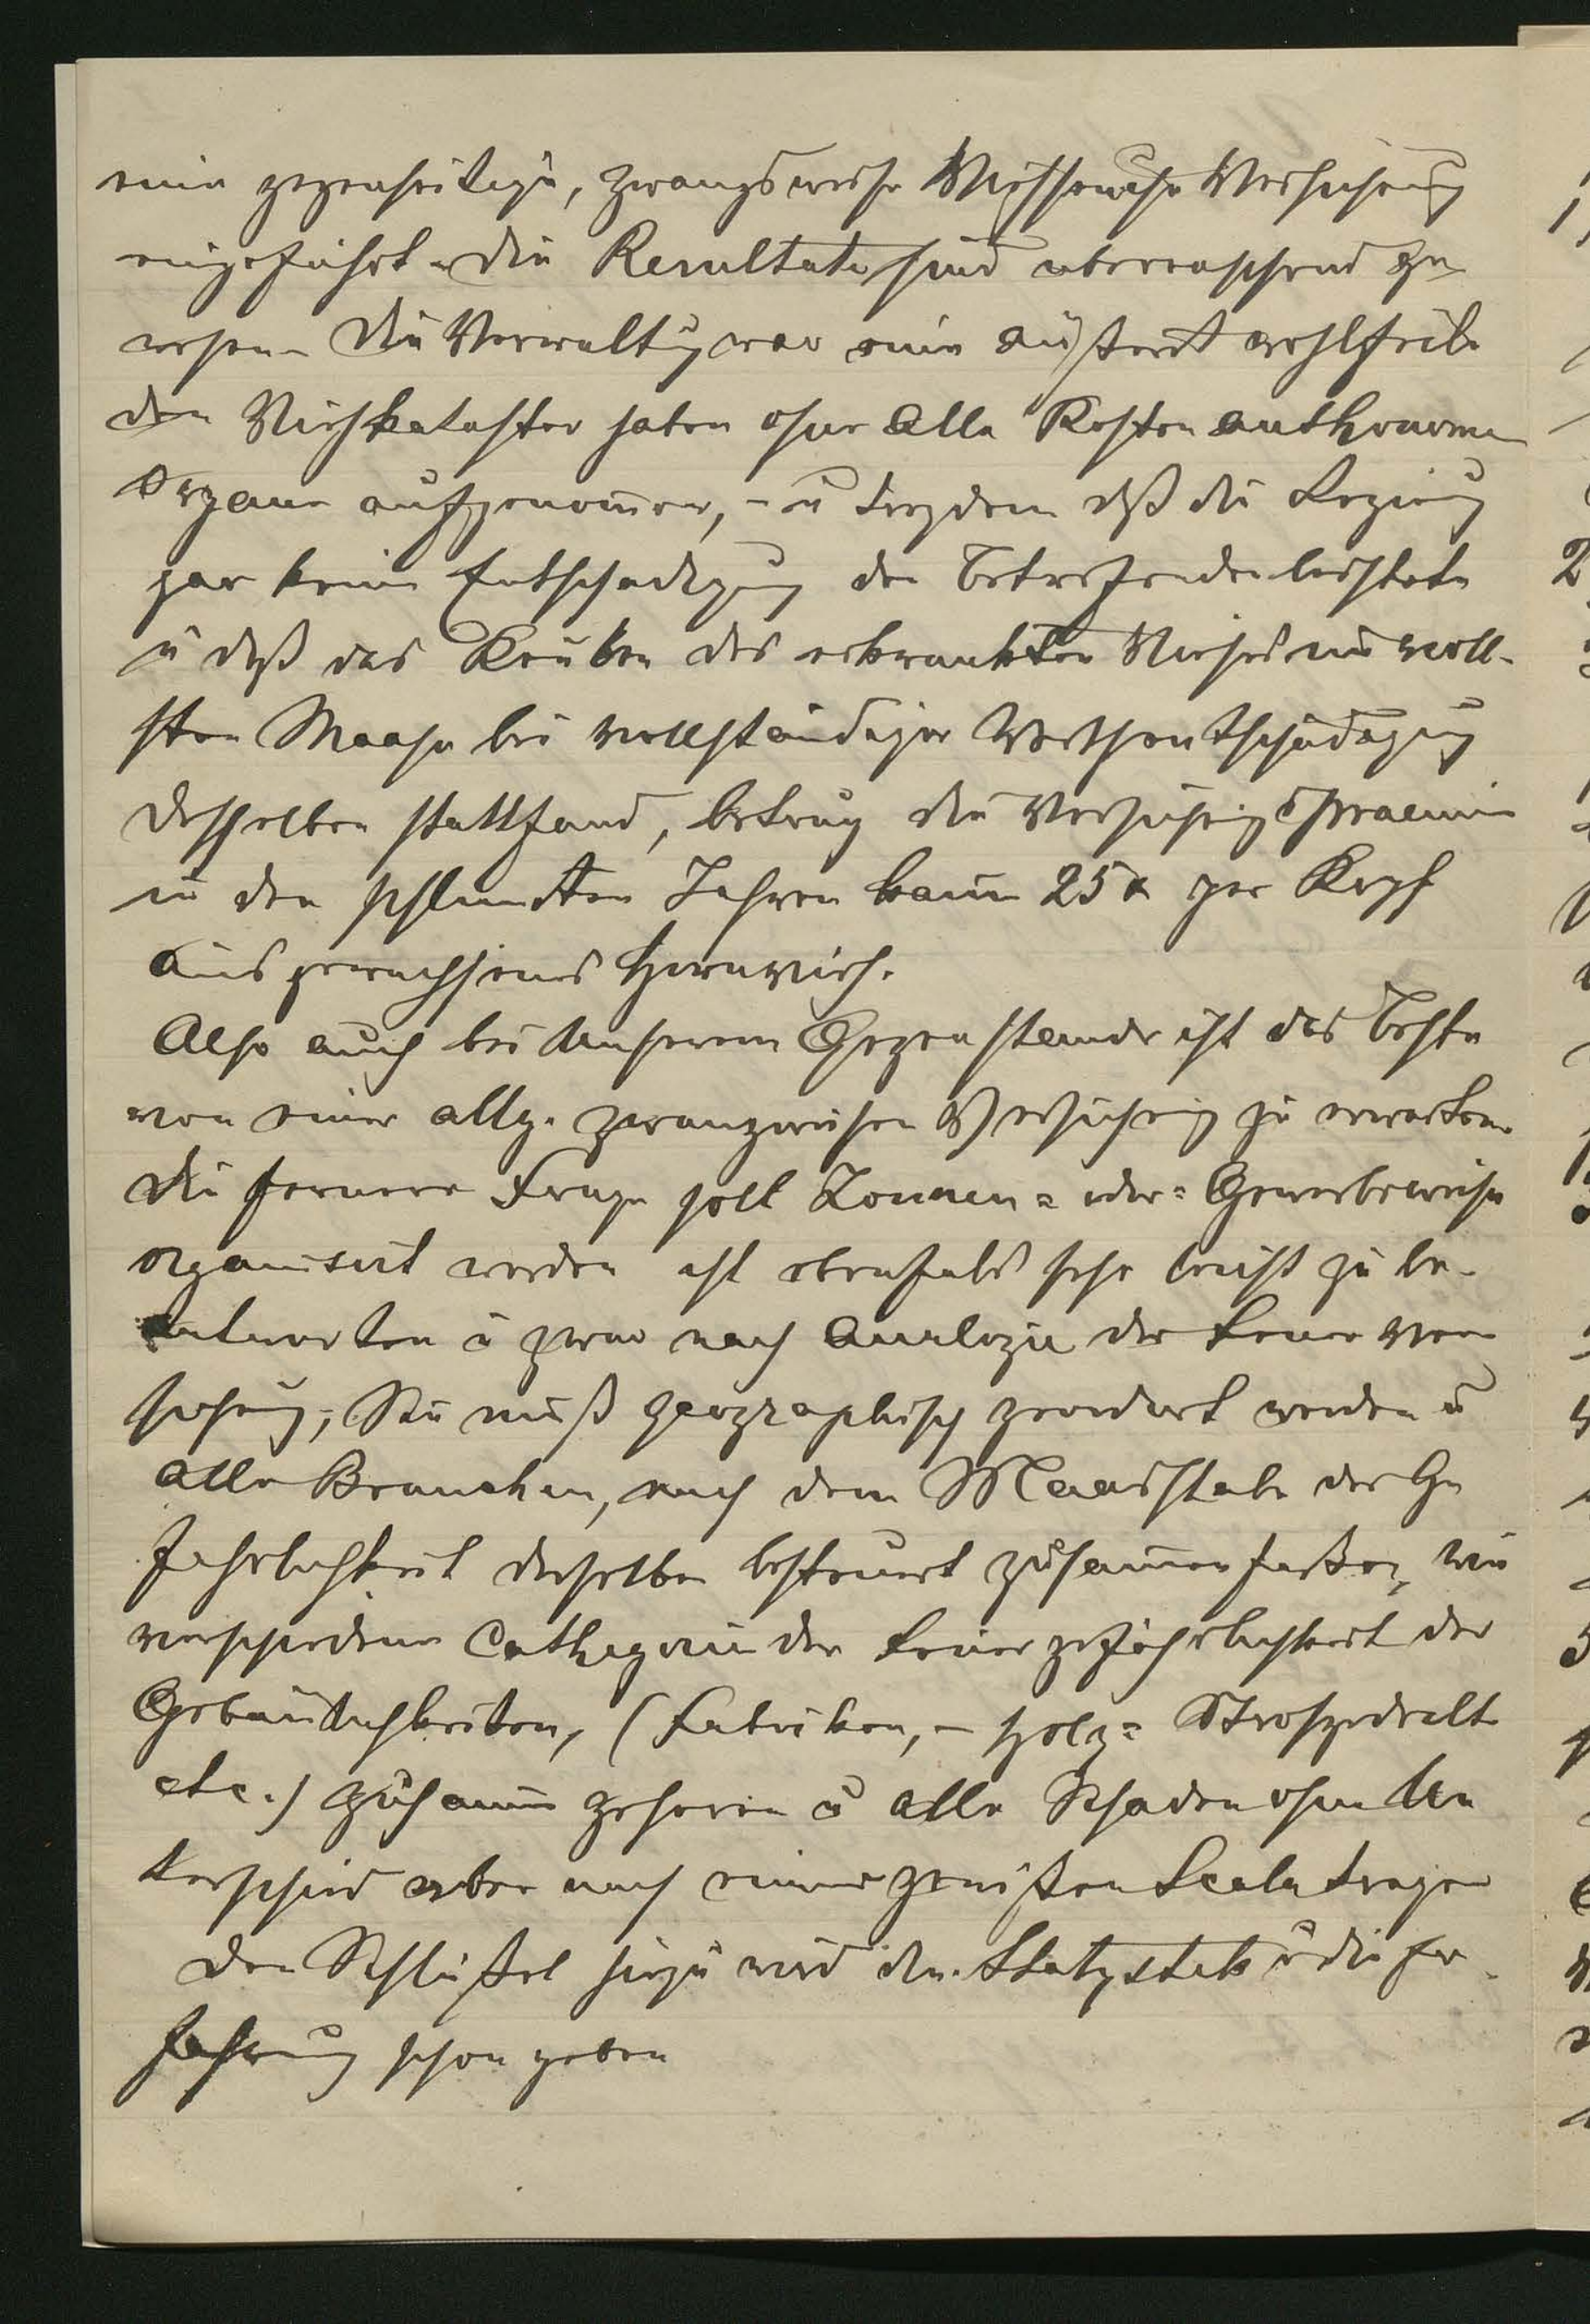 eine gegenseitige, zwangsweise Viehseuche Versicherung
eingeführt. die Resultate sind überraschend ge-
wesen. Die Verwaltung war eine äußerst wohlfeile
den Viehkataster haben ohne alle Kosten authonome
Organe aufgenomen, – u trozdem dß die Regierung
gar keine Entschädigung den Betreffenden leistete
u daß das Keulen des erkrankten Viehes im voll-
sten Maase bei vollständiger Werthentschädigung
desselben stattfand, betrug die Versicherungspraemie
in den schlimsten Jahren kaum 25 x per Kopf
ausgewachsenes Hornvieh.
Also auch bei Unserem Gegenstande ist das Beste
von einer allg. zwangweisen Versicherung zu erwarten.
Die fernere Frage soll Zonnen= oder= Gewerbeweise
organisirt werden ist ebenfals sehr leicht zu be-
antworten u zwar nach Analogie der Feuer Ver
sicherung; Sie muß geographisch geordnet werden u
alle Branchen, nach dem Maasstabe der Ge
fahrlichkeit derselben besteuert zusamenfaßen, wie
verschiedene Cathegorien der Feuergefährlichkeit der
Gebäudlichkeiten, (Fabriken, – Holz=
etc.) zusamen gehoren u alle Schaden ohne Un
terschied aber nach einer gewißen Scala tragen
Den Schlüßel hiezu wird die Statystik u die Er-
fahrung schon geben
2